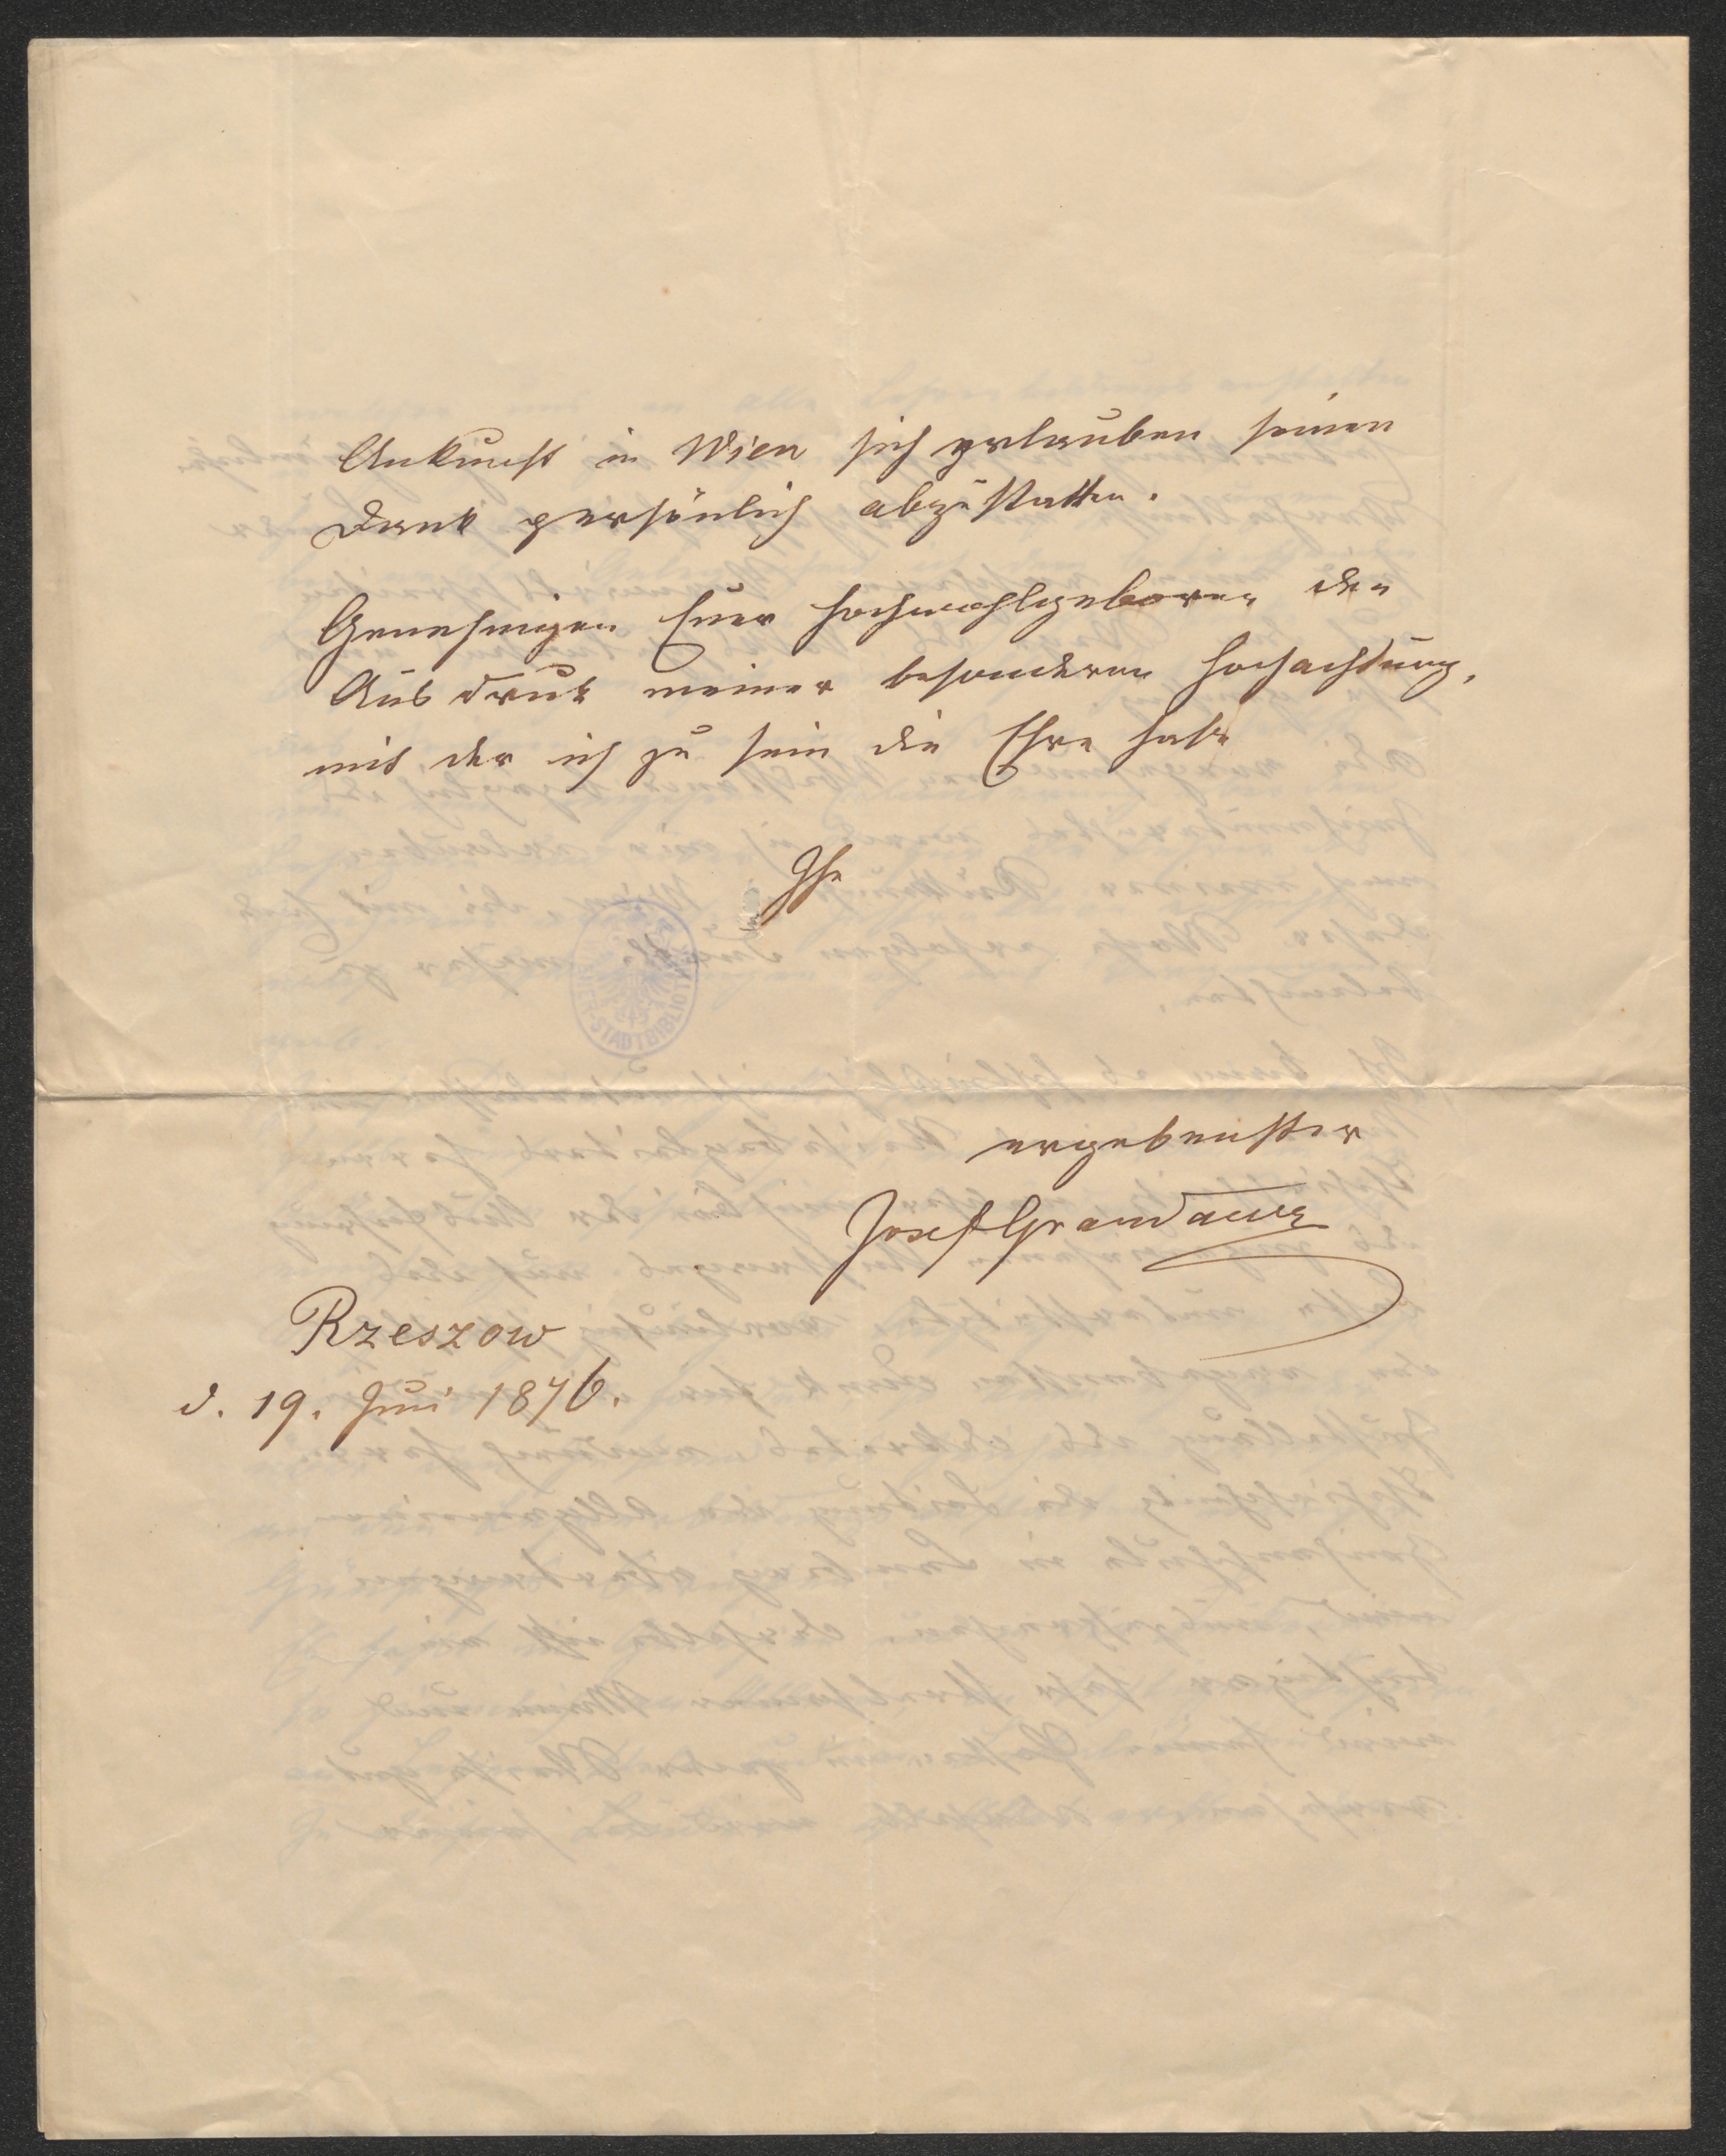 Ankunft in Wien sich erlauben seinen
Dank persönlich abzustatten.
Genehmigen Euer Hochwohlgeboren den
Ausdruck meiner besonderen Hochachtung,
mit der ich zu sein die Ehre habe
Ihr
STADTBIBLIOTHEK
ergebenster
Josef Grandauer
Rzeszow
d. 19. Juni 1876.